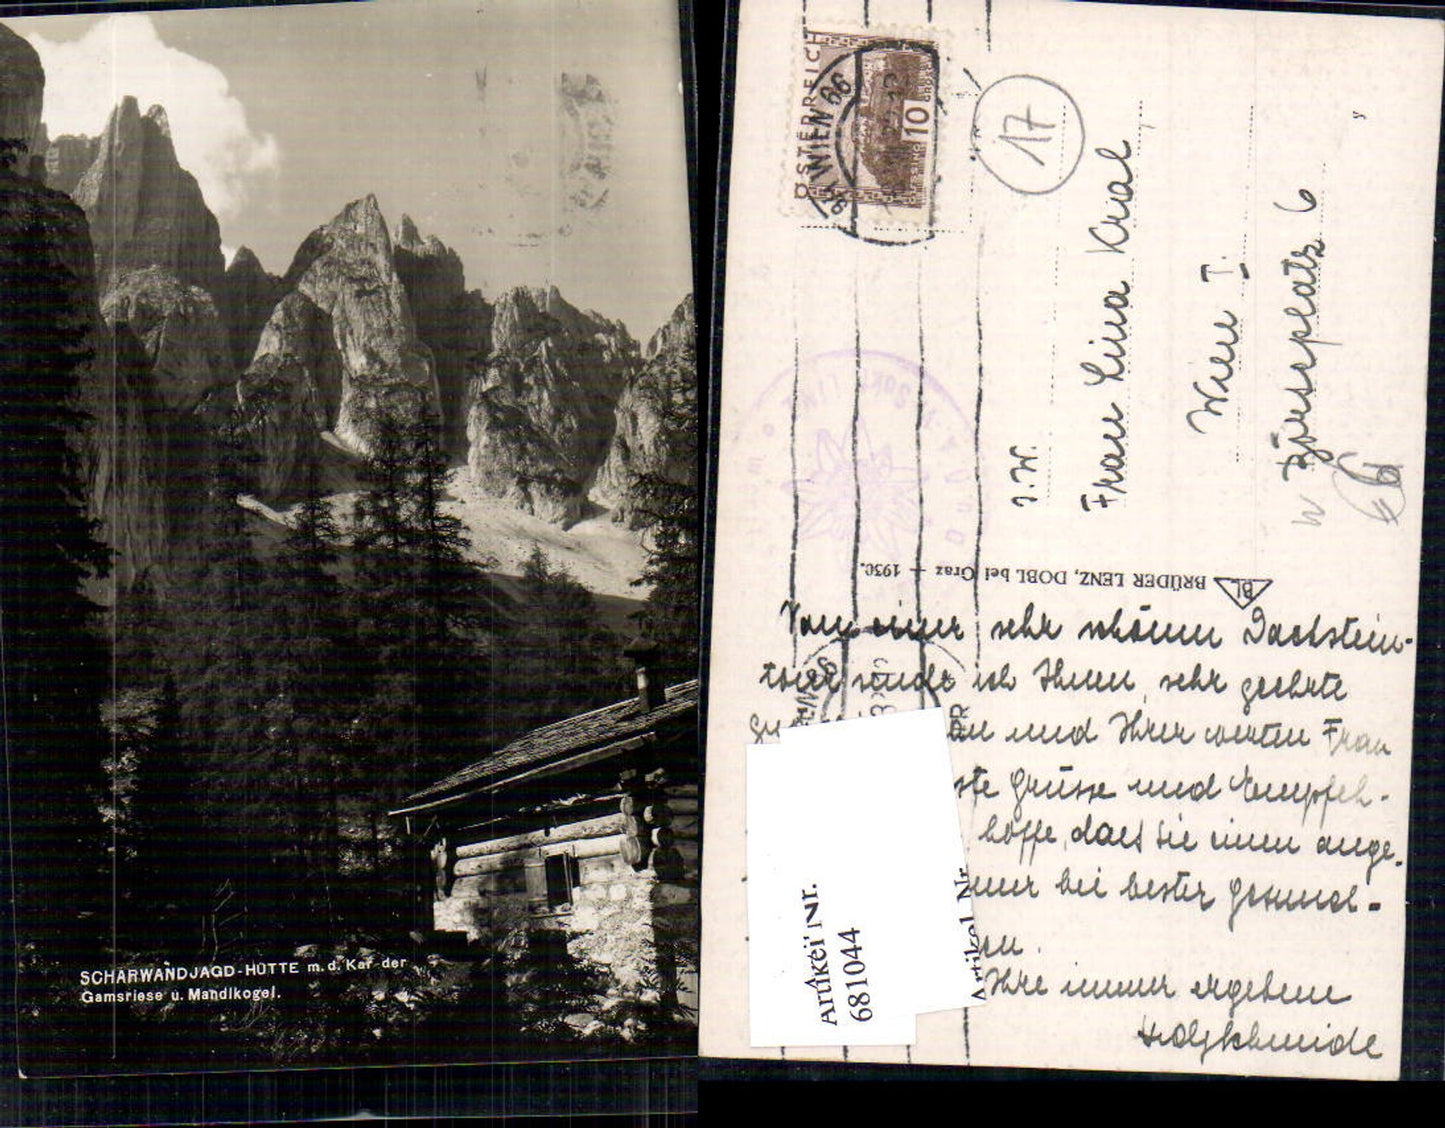 SCHARWANDJAGD-HÜTTE m. d. Kar der
Gamsriese u. Mandlkogel.
ÖSTERREICH
10
WIEN 66
17
I.W.
Frau Lina Kral
Wien I.
Börseplatz 6
BL
BRÜDER LENZ, DOBL bei Graz — 1930.
Von einer sehr schönen Dachstein-
tour sende ich Ihnen, sehr geehrte
und Ihrer werten Frau
Grüsse und Empfeh-
hoffe, dass Sie einen ange-
bei bester Gesund-
Ihre immer ergebene
Artikel Nr.
681044
Artikel Nr